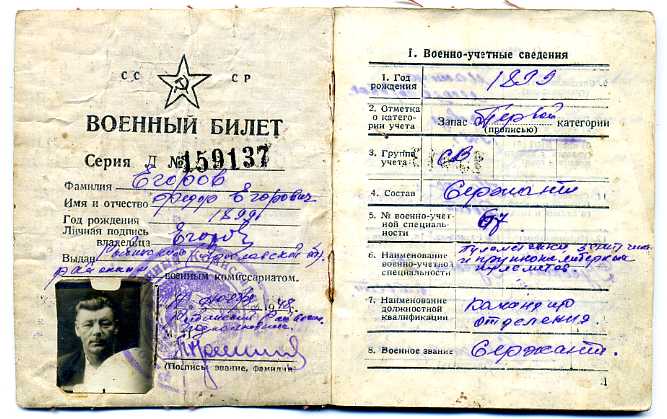 СС СР
ВОЕННЫЙ БИЛЕТ
Серия Д № 159137
Фамилия Егоров
Имя и отчество Федор Егорович
Год рождения 1899
Личная подпись
владельца Егоров
Выдан
районным
военным комиссариатом.
1948
(Подпись, звание, фамилия)
I. Военно-учетные сведения
1. Год
рождения 1899
2. Отметка
о катего-
рии учета Запас Первой категории
(прописью)
3. Группа
учета СВ
4. Состав Сержанты
5. № военно-учет-
ной специаль-
ности 67
6. Наименование
военно-учетной
специальности
и крупнокалиберных
пулеметов.
7. Наименование
должностной
квалификации Командир
отделения.
8. Военное звание Сержант.